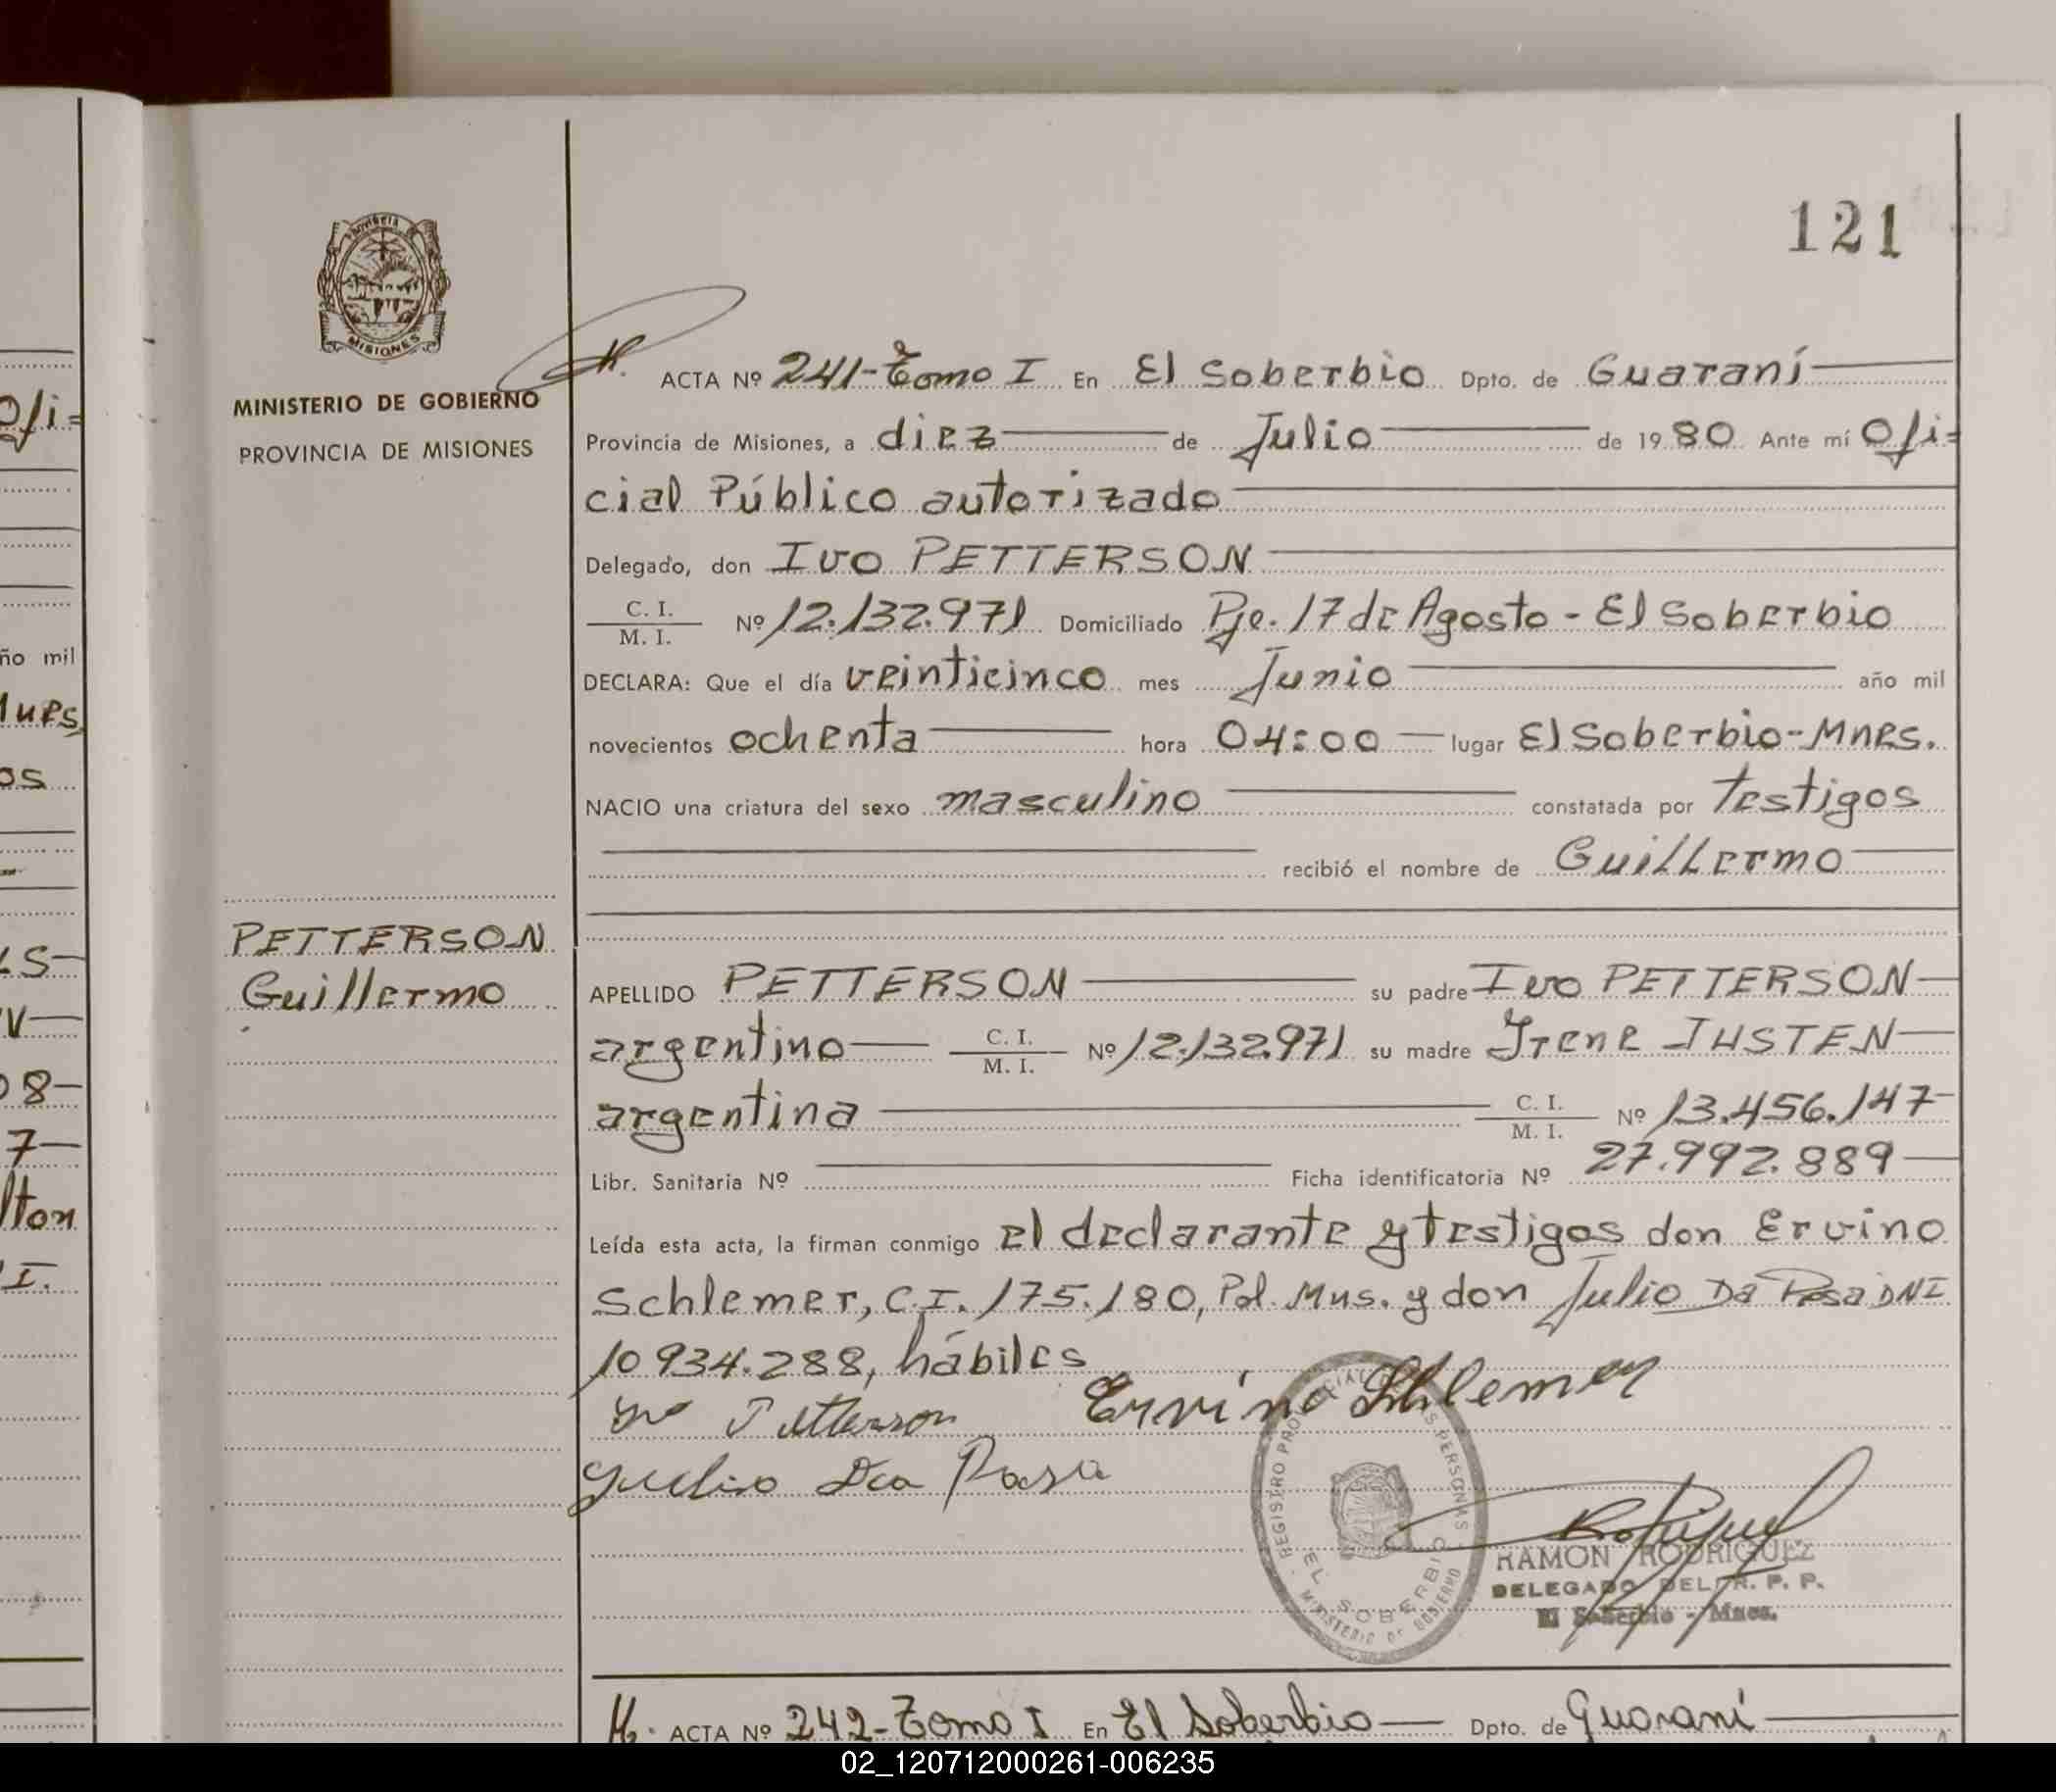 121
PROVINCIA
MISIONES
MINISTERIO DE GOBIERNO
PROVINCIA DE MISIONES
PETTERSON
Guillermo
ACTA Nº 241-Tomo I En El Soberbio Dpto. de Guaraní
Provincia de Misiones, a diez de Julio de 1980 Ante mí Ofi=
cial Público autorizado
Delegado, don Ivo PETTERSON
C. I. / M. I. Nº 12.132.971 Domiciliado Pje. 17 de Agosto - El Soberbio
DECLARA: Que el día veinticinco mes Junio año mil
novecientos ochenta hora 04:00 lugar El Soberbio-Mnes.
NACIO una criatura del sexo masculino constatada por testigos
recibió el nombre de Guillermo
APELLIDO PETTERSON su padre Ivo PETTERSON
argentino C. I. / M. I. Nº 12.132.971 su madre Irene IHSTEN
argentina C. I. / M. I. Nº 13.456.147
Libr. Sanitaria Nº Ficha identificatoria Nº 27.992.889
Leída esta acta, la firman conmigo el declarante y testigos don Ervino
Schlemer, C.I. 175.180, Pol. Mns. y don Julio Da Rosa DNI
10934.288, hábiles
Ivo Petterson Ervino Schlemer
Julio Da Rosa
REGISTRO PROVINCIAL DE LAS PERSONAS
EL SOBERBIO
MINISTERIO DE GOBIERNO
RAMON RODRIGUEZ
DELEGADO DEL R. P. P.
El Soberbio - Mnes.
M. ACTA Nº 242-Tomo I En El Soberbio Dpto. de Guaraní
Ofi=
ño mil
Mnes
os
LS
V
08
7
lton
I.
02_120712000261-006235